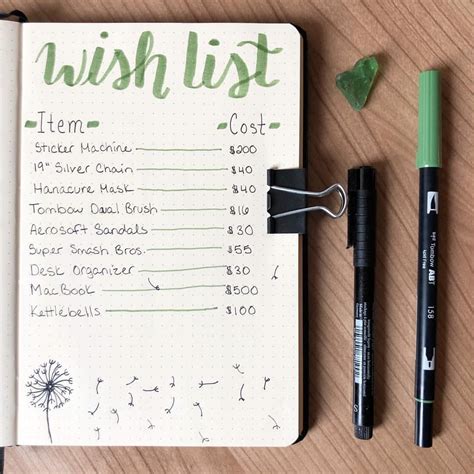 wish list
Item Cost
Sticker Machine $200
19" Silver Chain $40
Hanacure Mask $40
Tombow Dual Brush $16
Aerosoft Sandals $30
Super Smash Bros. $55
Desk Organizer $30
MacBook $500
Kettlebells $100
Tombow ABT
158